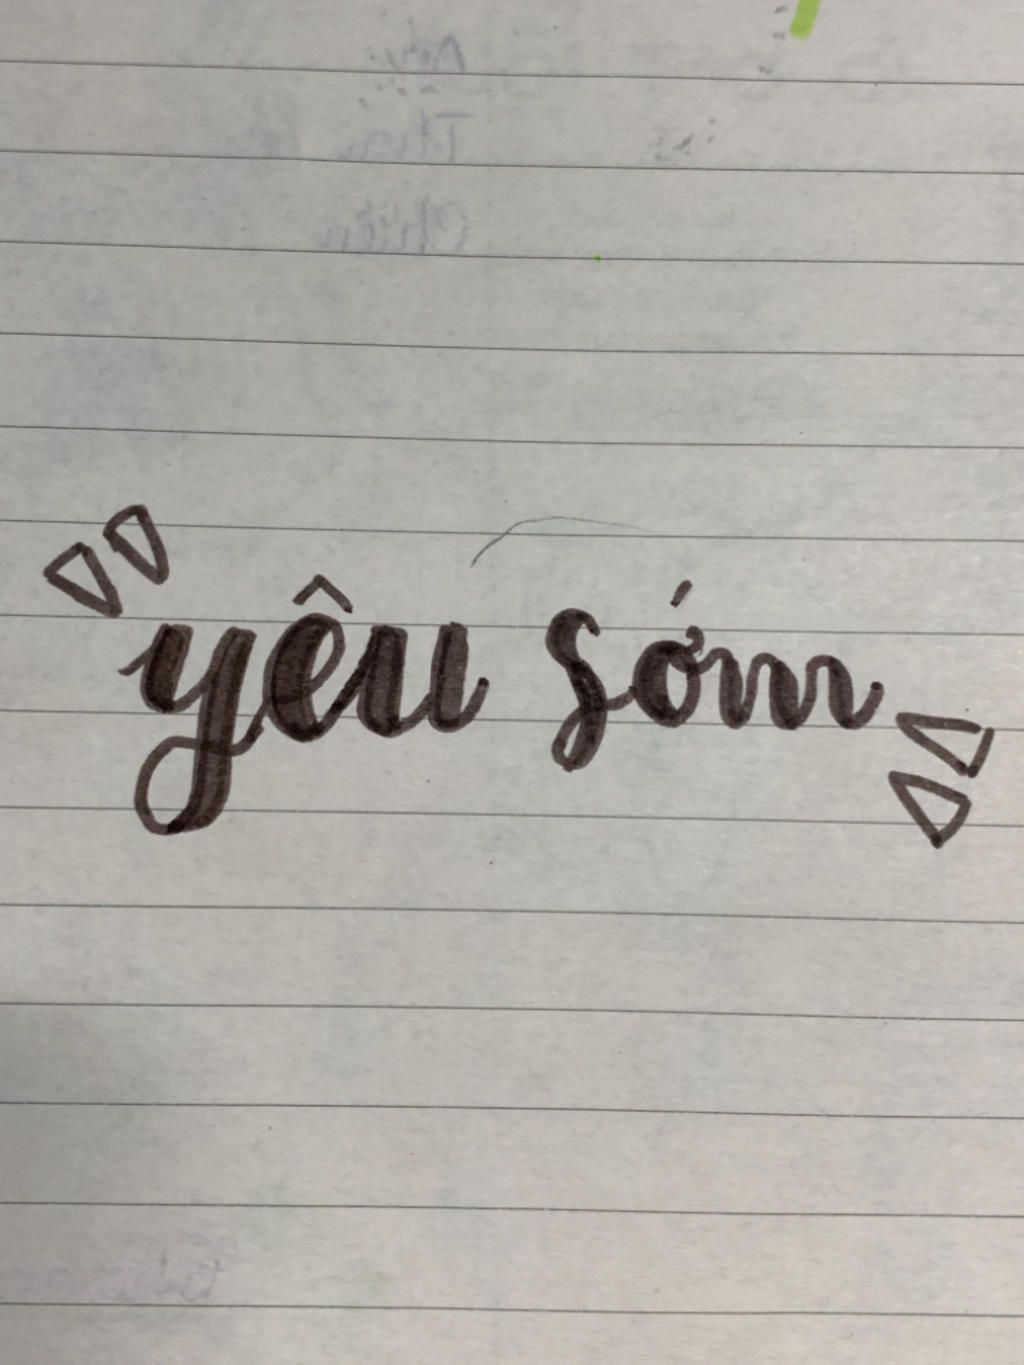 yêu sớm